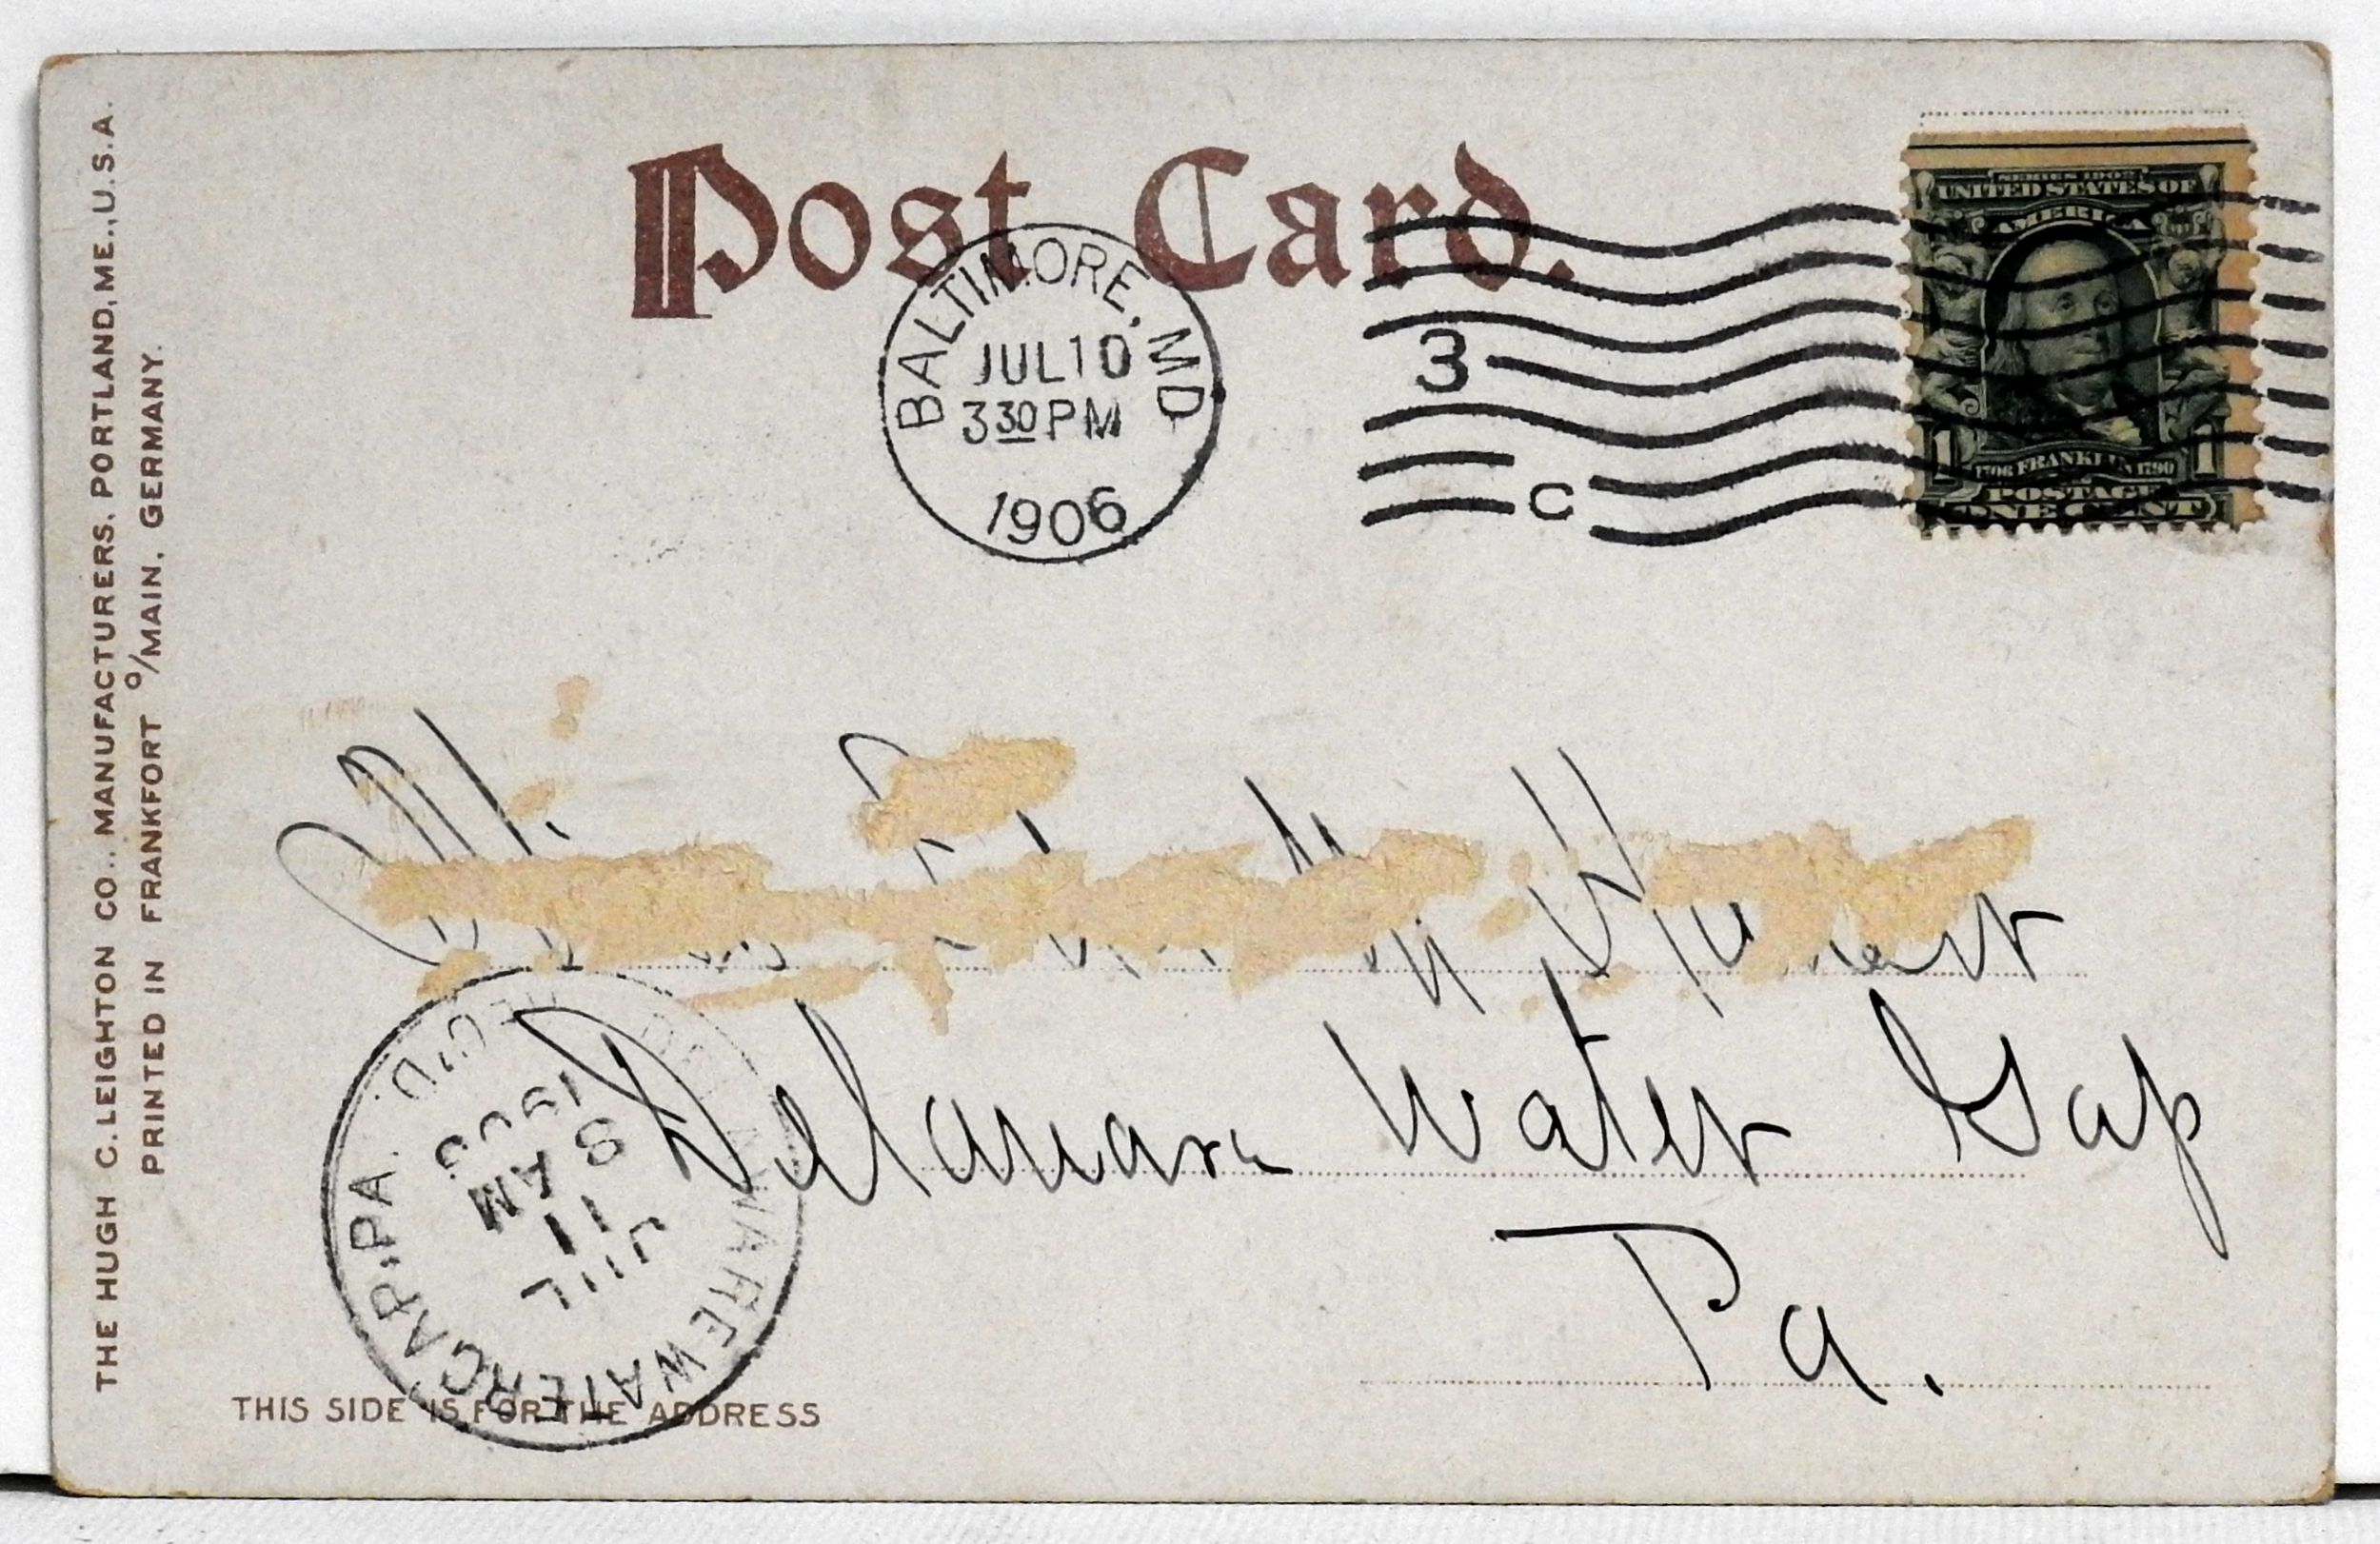 Post Card.
BALTIMORE, MD
JUL 10
3 30 PM
1906
3
C
SERIES 1902
UNITED STATES OF
AMERICA
1 1706 FRANKLIN 1790 1
POSTAGE
ONE CENT
THE HUGH C. LEIGHTON CO., MANUFACTURERS, PORTLAND, ME., U.S.A.
PRINTED IN FRANKFORT o/MAIN, GERMANY.
Delaware Water Gap
Pa.
DELAWARE WATER GAP, PA. REC'D.
JUL
11
8 AM
THIS SIDE IS FOR THE ADDRESS